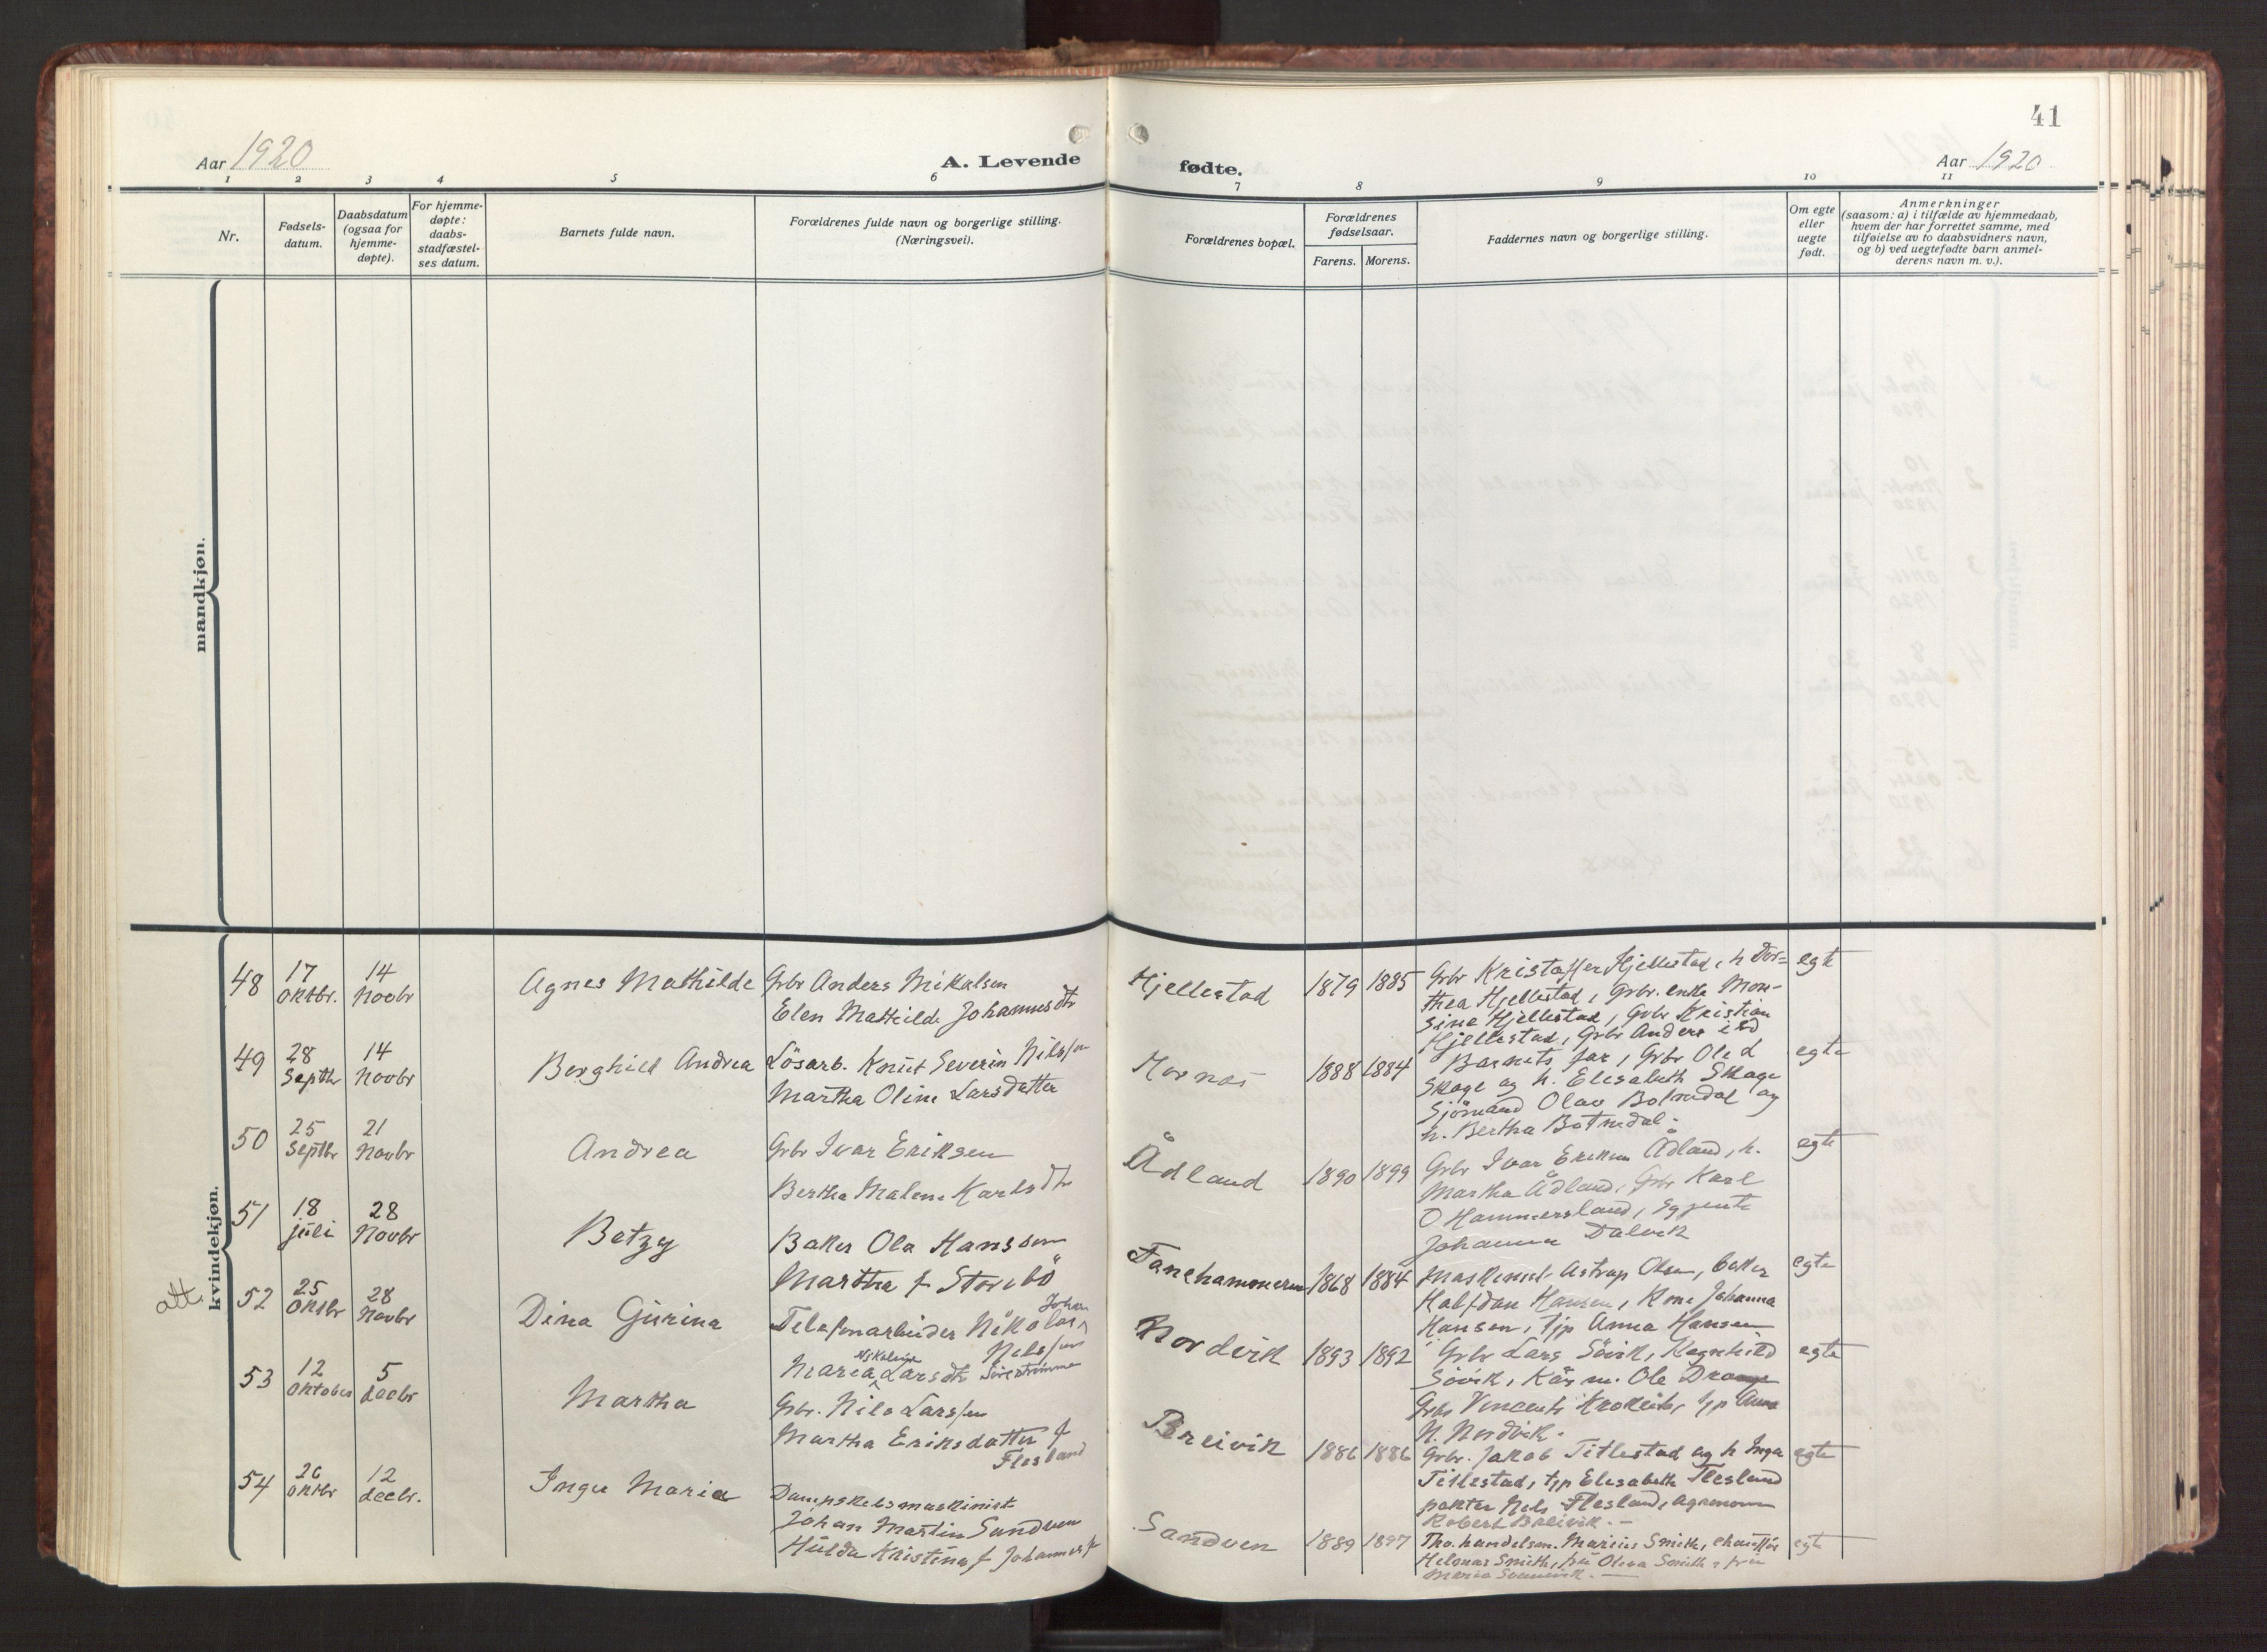 41
Aar 1920
A. Levende
fødte.
Aar 1920
1 2 3 4 5 6 7 8 9 10 11
Nr.
Fødsels-
datum.
Daabsdatum
(ogsaa for
hjemme-
døpte).
For hjemme-
døpte:
daabs-
stadfæstel-
ses datum.
Barnets fulde navn.
Forældrenes fulde navn og borgerlige stilling.
(Næringsvei).
Forældrenes bopæl.
Forældrenes
fødselsaar.
Farens. Morens.
Faddernes navn og borgerlige stilling.
Om egte
eller
uegte
født.
Anmerkninger
(saasom: a) i tilfælde av hjemmedaab,
hvem der har forrettet samme, med
tilføielse av to daabsvidners navn,
og b) ved uegtefødte barn anmel-
derens navn m. v.).
mandkjøn.
kvindekjøn.
48
17
Oktbr.
14
Novbr
Agnes Mathilde
Grbr Anders Mikalsen
Elen Mathilde Johannesdtr
Hjellestad
1879 1885
Grbr Kristoffer Hjellestad, h Dor-
thea Hjellestad, Grbr. enke Mon-
sine Hjellestad, Grbr Kristian
Hjellestad, Grbr Anders
egte
49
28
Septbr
14
Novbr
Borghild Andrea
Lösarb. Knut Severin Nilssen
Martha Oline Larsdatter
1888 1884
Barnets far, Grbr Ole L
Skage og h. Elisabeth Skage
Sjömand Olav Botnedal og
h. Bertha Botnedal.
egte
50
25
Septbr
21
Novbr
Andrea
Grbr Ivar Eriksen
Bertha Malene Karlsdtr
Ådland
1890 1899
Grbr Ivar Eriksen Ådland, h.
Martha Ådland, Grbr Karl
O Hammersland,
Johanna Dalvik
egte
51
18
juli
28
Novbr
Betzy
Baker Ola Hanssen
Martha f Storebö
Fanehammeren
1868 1884
Maskinist Astrup Olsen, baker
Halfdan Hansen, Kone Johanna
Hansen, tjp Anna Hansen
egte
att
52
25
Oktbr
28
Novbr
Dina Gurina
Telefonarbeider Nikolai Johan
Nilssen
Maria Nikolina Larsdtr
Nordvik
1893 1892
Grbr Lars Sövik, Ragnhild
Sövik, Ole
Grbr Vincents tjp Anna
N. Nordvik.
egte
53
12
Oktober
5
decbr
Martha
Grbr. Nils Larssen
Martha Eriksdatter f
Flesland
Breivik
1886 1886
Grbr. Jakob Titlestad og h Inga
Titlestad, tjp Elisabeth Flesland
Nils Flesland, Agronom
Robert Breivik. –
egte
54
26
Oktbr
12
decbr.
Inga Maria
Dampskibsmaskinist
Johan Martin Sandven
Hulda Kristina f Johannessen
Sandven
1889 1897
Marius Smith, chauffør
Smith, fru Olava Smith, fru
Maria
egte